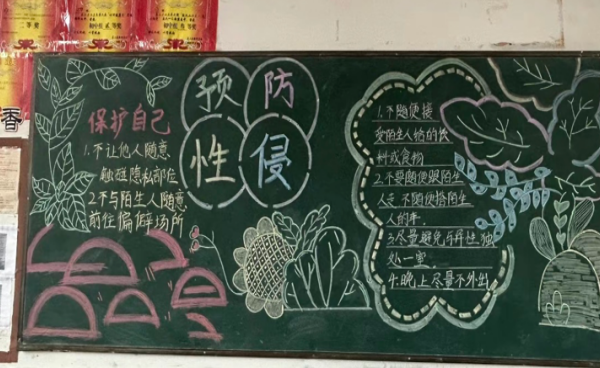 预防
性侵
保护自己
1.不让他人随意
触碰隐私部位
2.不与陌生人随意
前往偏僻场所
1.不随便接
受陌生人给的饮
料或食物
2.不要随便跟陌生
人走 不随便搭陌生
人的车.
3.尽量避免与异性独
处一室.
4.晚上尽量不外出
香